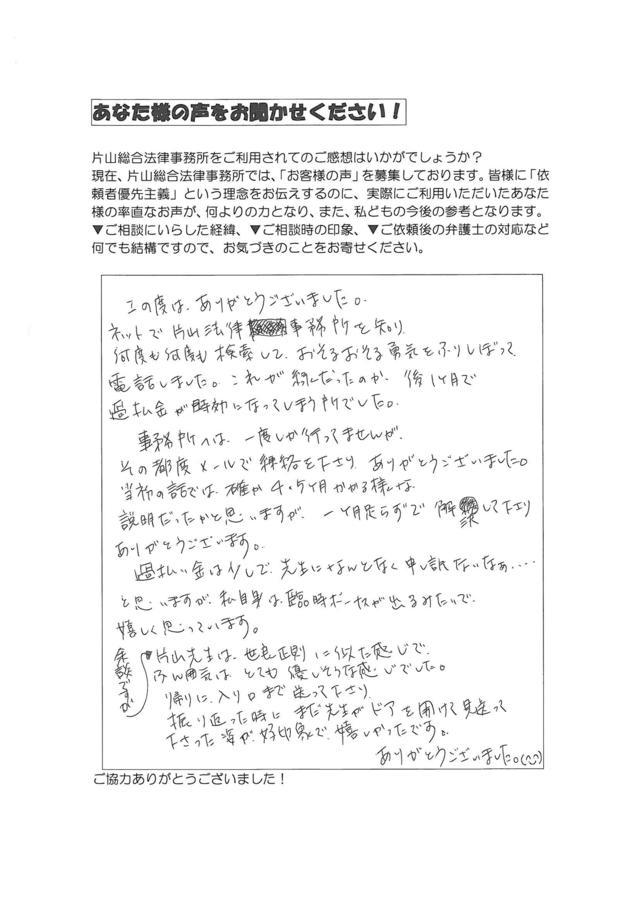 あなた様の声をお聞かせください！
片山総合法律事務所をご利用されてのご感想はいかがでしょうか？
現在、片山総合法律事務所では、「お客様の声」を募集しております。皆様に「依
頼者優先主義」という理念をお伝えするのに、実際にご利用いただいたあなた
様の率直なお声が、何よりの力となり、また、私どもの今後の参考となります。
▼ご相談にいらした経緯、▼ご相談時の印象、▼ご依頼後の弁護士の対応など
何でも結構ですので、お気づきのことをお寄せください。
この度は、ありがとうございました。
ネットで片山法律事務所を知り
何度も何度も検索して、おそるおそる勇気をふりしぼって
電話しました。これが縁だったのか、後1ヶ月で
過払金が時効になってしまう所でした。
事務所へは、一度しか行ってませんが、
その都度メールで連絡を下さり、ありがとうございました。
当初の話では、確か4・5ヶ月かかる様な
説明だったかと思いますが、一ヶ月足らずで解決して下さり
ありがとうございます。
過払い金は少しで、先生になんとなく申し訳ないなぁ････
と思いますが、私自身は、臨時ボーナスが出るみたいで、
嬉しく思っています。
余談ですが
片山先生は、世良正則に似た感じで、
ふん囲気は、とても優しそうな感じでした。
帰りに、入り口まで送って下さり、
振り返った時に、まだ先生がドアを開けて見送って
下さった姿が、好印象で、嬉しかったです。
ありがとうございました。(^^)
ご協力ありがとうございました！